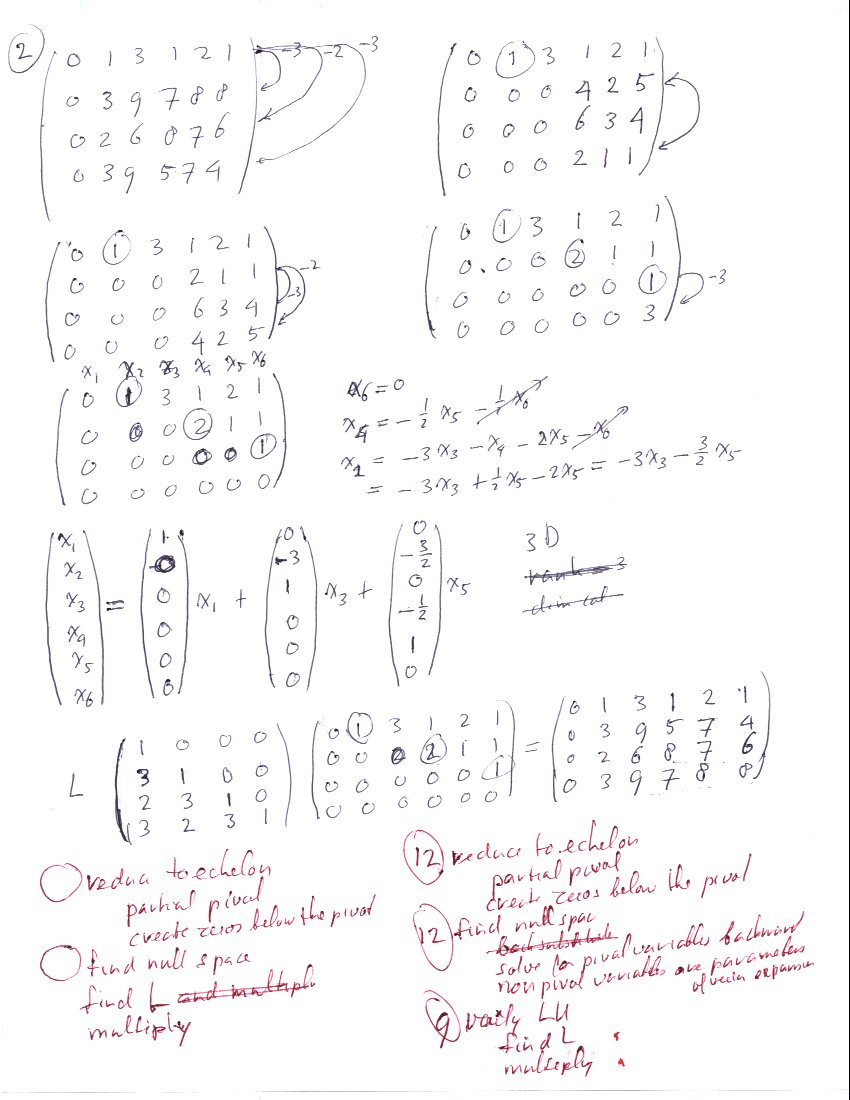 2
0 1 3 1 2 1
0 3 9 7 8 8
0 2 6 8 7 6
0 3 9 5 7 4
-3 -2 -3
0 1 3 1 2 1
0 0 0 4 2 5
0 0 0 6 3 4
0 0 0 2 1 1
0 1 3 1 2 1
0 0 0 2 1 1
0 0 0 6 3 4
0 0 0 4 2 5
-2
-3
0 1 3 1 2 1
0 0 0 2 1 1
0 0 0 0 0 1
0 0 0 0 0 3
-3
x₁ x₂ x₃ x₄ x₅ x₆
0 1 3 1 2 1
0 0 0 2 1 1
0 0 0 0 0 1
0 0 0 0 0 0
x₆ = 0
x₄ = -1/2 x₅ - 1/2 x₆
x₂ = -3x₃ - x₄ - 2x₅ - x₆
= -3x₃ + 1/2 x₅ - 2x₅ = -3x₃ - 3/2 x₅
x₁ 1 0 0
x₂ 0 -3 -3/2
x₃ = 0 x₁ + 1 x₃ + 0 x₅
x₄ 0 0 -1/2
x₅ 0 0 1
x₆ 0 0 0
3D
rank = 3
L
1 0 0 0
3 1 0 0
2 3 1 0
3 2 3 1
0 1 3 1 2 1
0 0 0 2 1 1
0 0 0 0 0 1
0 0 0 0 0 0
=
0 1 3 1 2 1
0 3 9 5 7 4
0 2 6 8 7 6
0 3 9 7 8 8
reduce to echelon
partial pivot
create zeros below the pivot
find null space
find L and multiply
multiply
12 reduce to echelon
partial pivot
create zeros below the pivot
12 find null spac
back substitute
solve for pivot variables backward
non pivot variables are parameters
of vector expansion
9 verify LU
find L
multiply